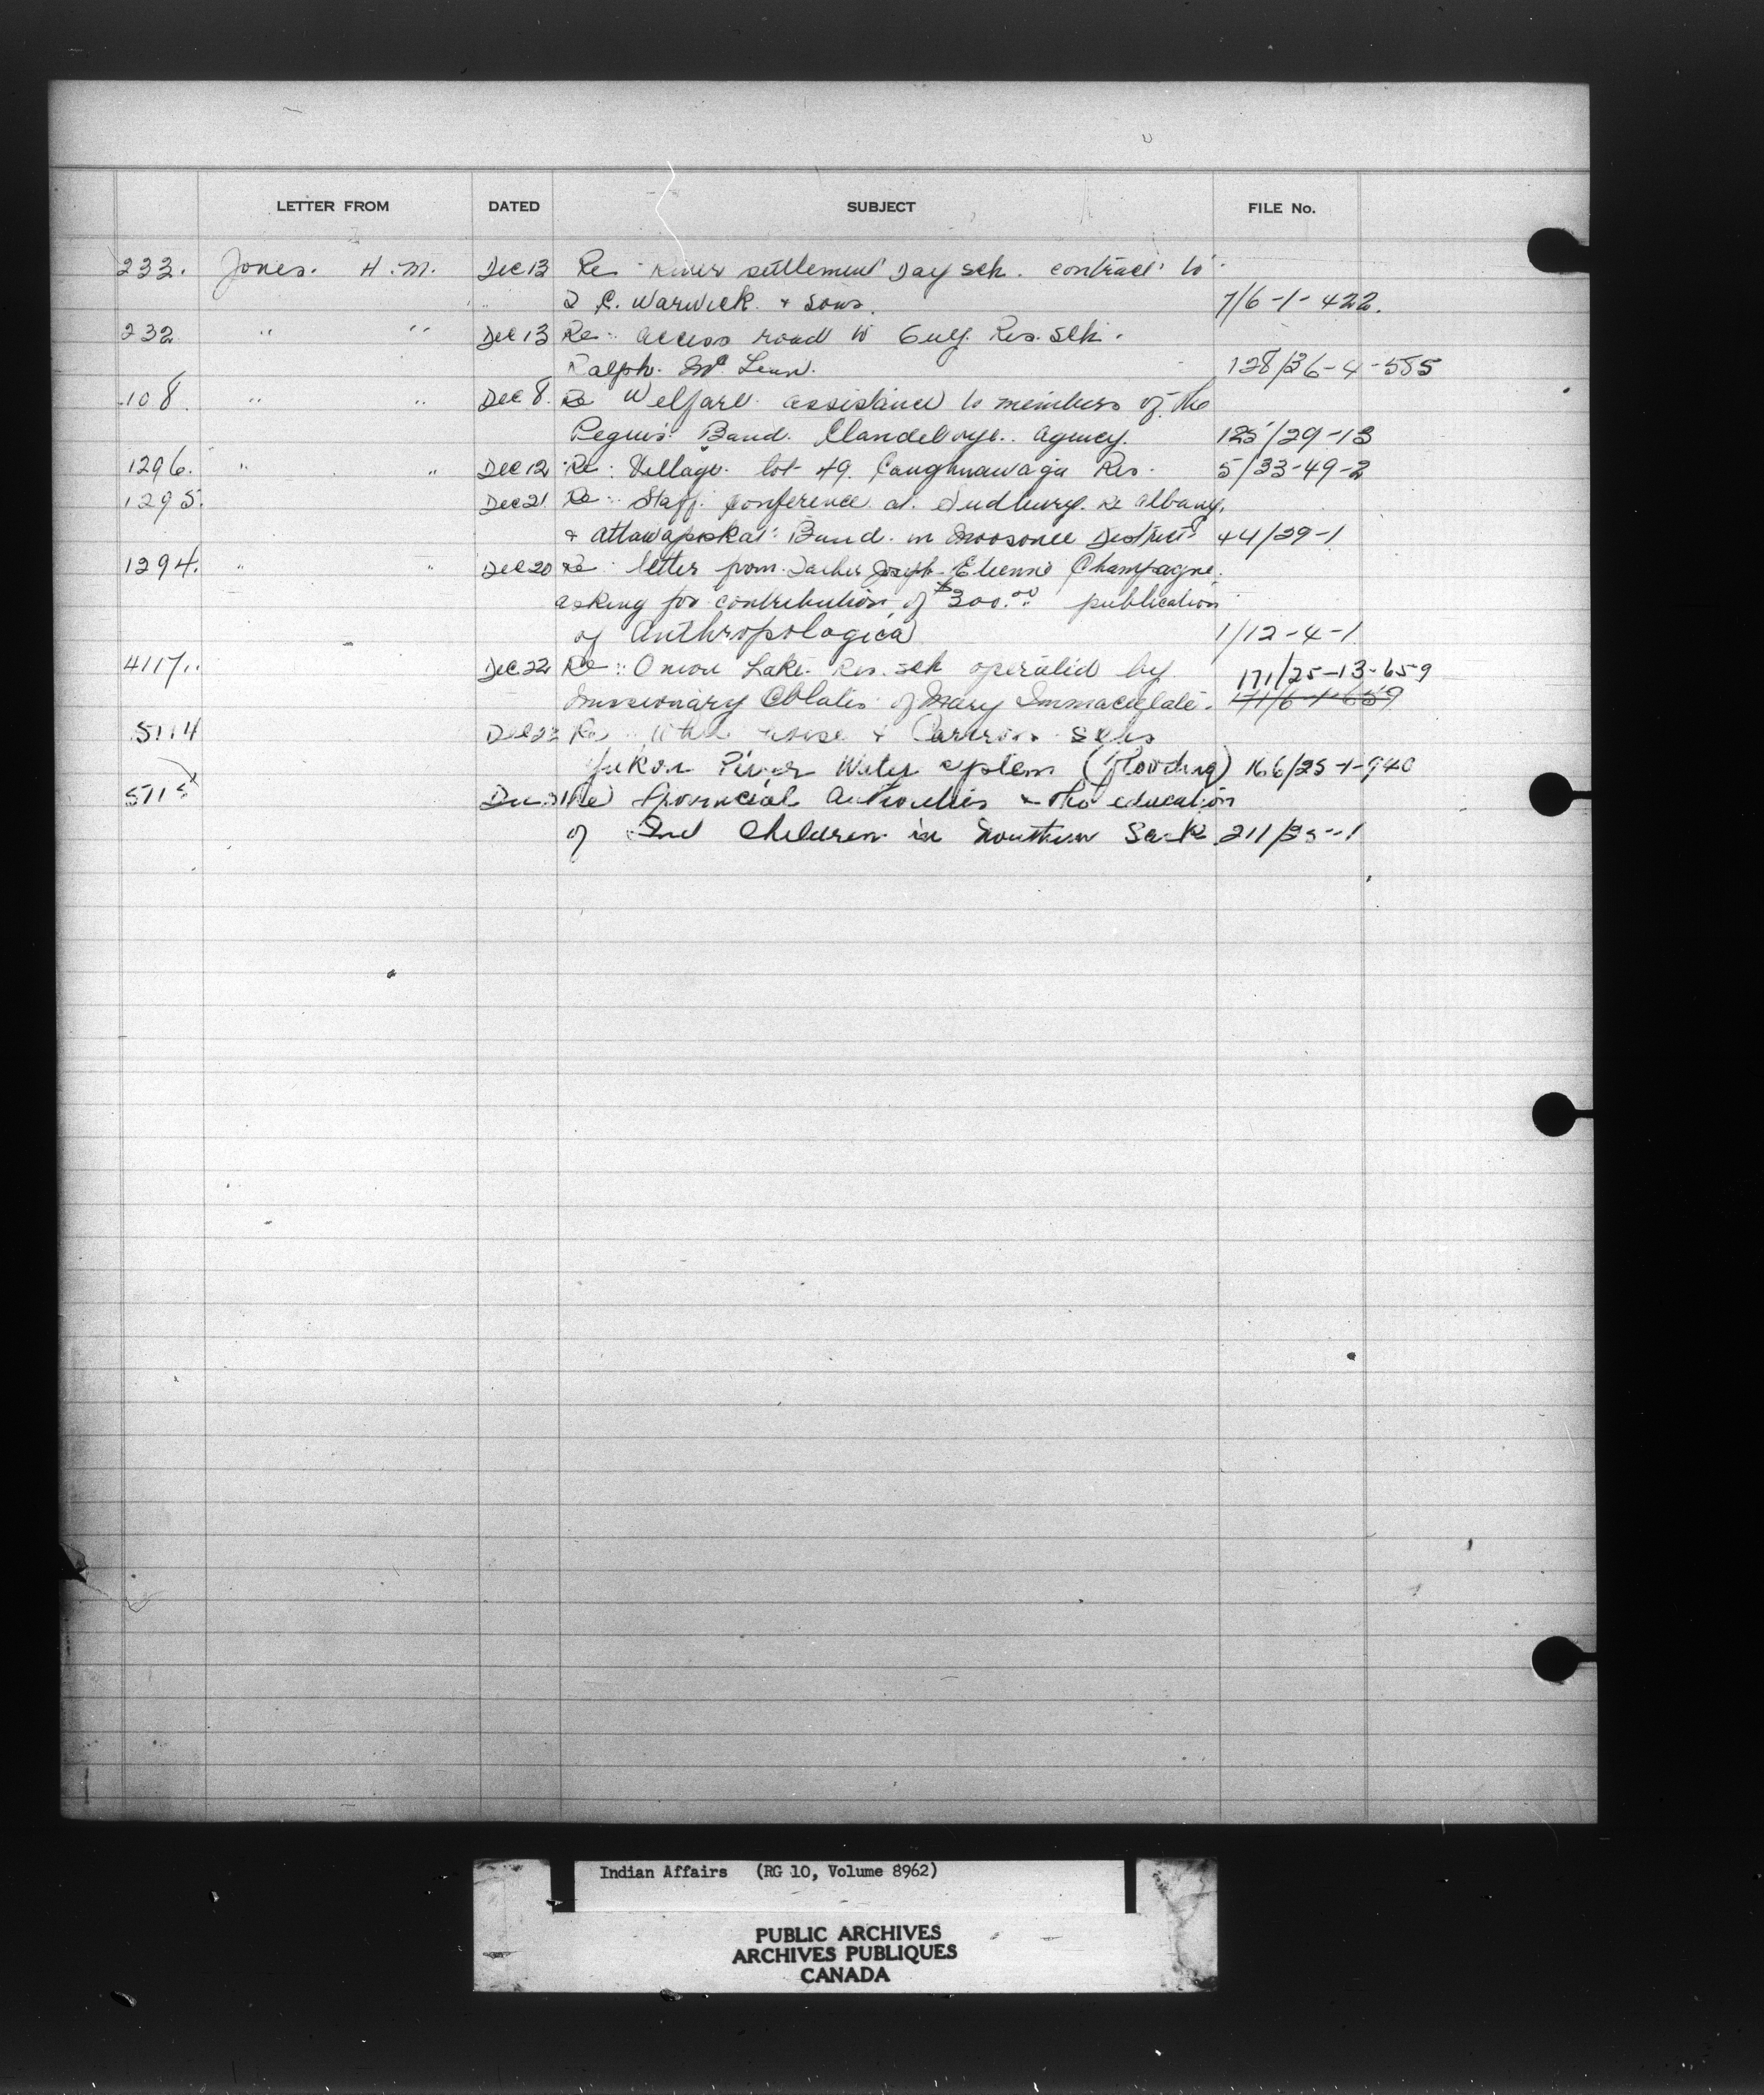 LETTER FROM DATED SUBJECT FILE No.
233. Jones. H.M. Dec 13 Re River settlement Day sch. contract to
C. Warwick & Sons. 7/6-1-422.
232 " " Dec 13 Re: access road to Guy. Res. Sch.
Ralph. Mc Lean. 128/36-4-555
108. " " Dec 8. Re Welfare assistance to members of the
Peguis Band. Clandeboye. agency. 125/29-13
1296. " " Dec 12 Re: Village lot 49. Caughnawaga Res. 5/33-49-2
1295. Dec 21 Re: Staff. Conference at. Sudbury. Re Albany,
& Attawapiskat Band. in Moosonee District 44/29-1
1294. " " Dec 20 Re letter from Father Joseph-Etienne Champagne.
asking for contribution of $300.00 publication
of Anthropologica 1/12-4-1
4117. Dec 22 Re: Onion Lake. Res. sch operated by 171/25-13-659
Missionary Oblates of Mary Immaculate. 171/6-1-659
5114 Dec 22 Re Whitehorse & Carcross Schs
Yukon River Water system (flooding) 166/25-1-940
5115 Dec 21 Re Provincial Authorities & the education
of Ind Children in Northern Sask 211/25-1
Indian Affairs (RG 10, Volume 8962)
PUBLIC ARCHIVES
ARCHIVES PUBLIQUES
CANADA